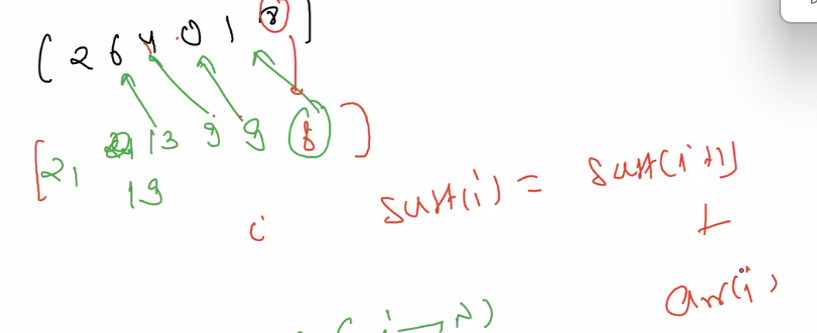 [ 2 6 4 0 1 8 ]
[ 21 13 9 9 8 ]
19
i
suff(i) = suff(i+1)
+
arr(i)